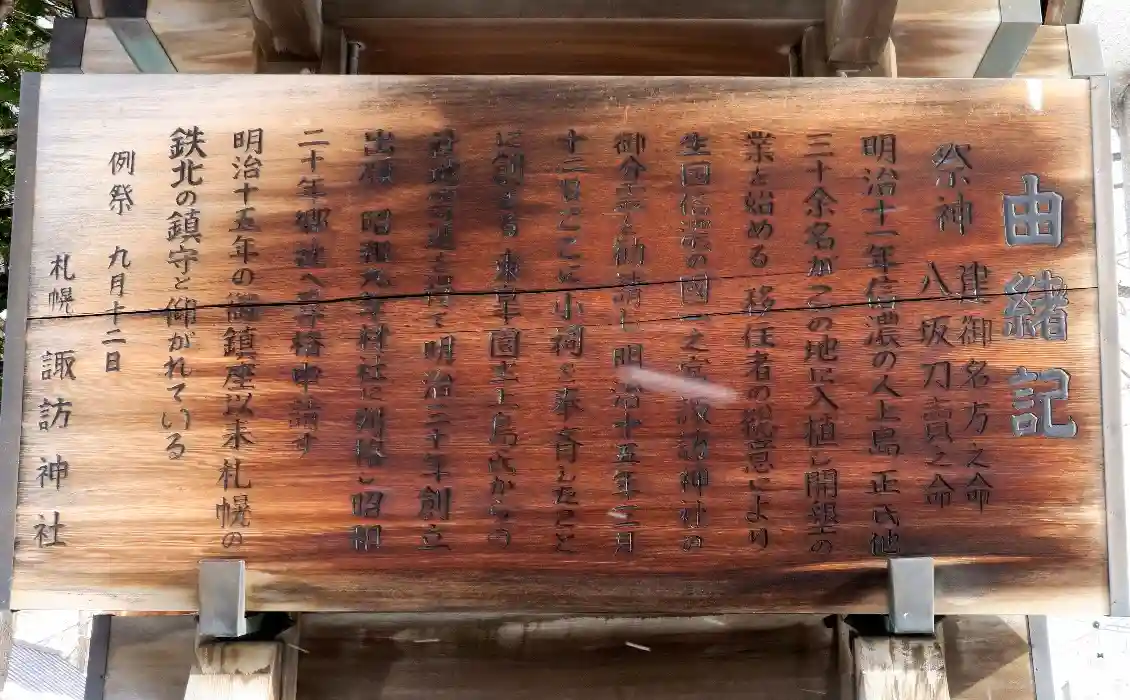 由緒記
祭神 建御名方之命
八坂刀賣之命
明治十一年信濃の人上島 正氏他
三十余名がこの地に入植し開墾の
業を始める 移住者の総意により
生国信濃の國一之宮諏訪神社の
御分霊を勧請し明治十五年三月
十二日ここに小祠を奉斎したこと
に創まる 東皐園主上島氏からの
明治三十年創立
出願 昭和九年村社に列格し昭和
二十年郷社へ昇格申請す
明治十五年の御鎮座以来札幌の
鉄北の鎮守と仰がれている
例祭 九月十二日
札幌 諏訪神社